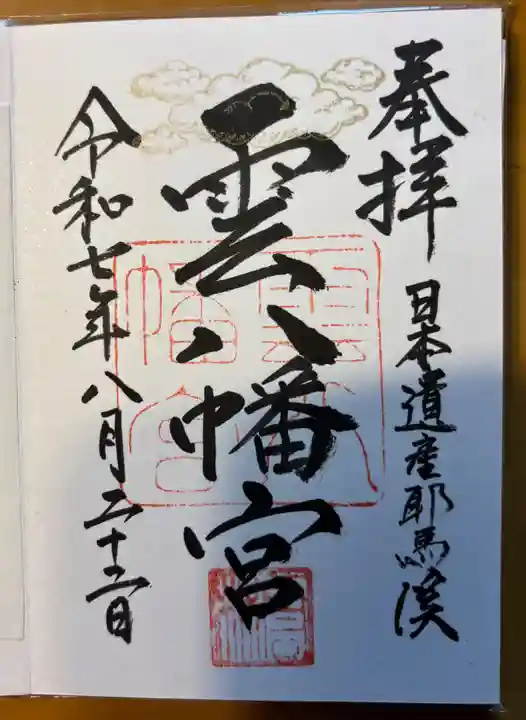 奉拝
日本遺産耶馬溪
雲八幡宮
令和七年八月二十二日
雲八幡宮